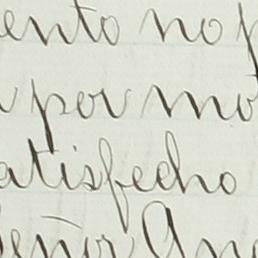 ento no p
por mo
atisfecho
eñor An